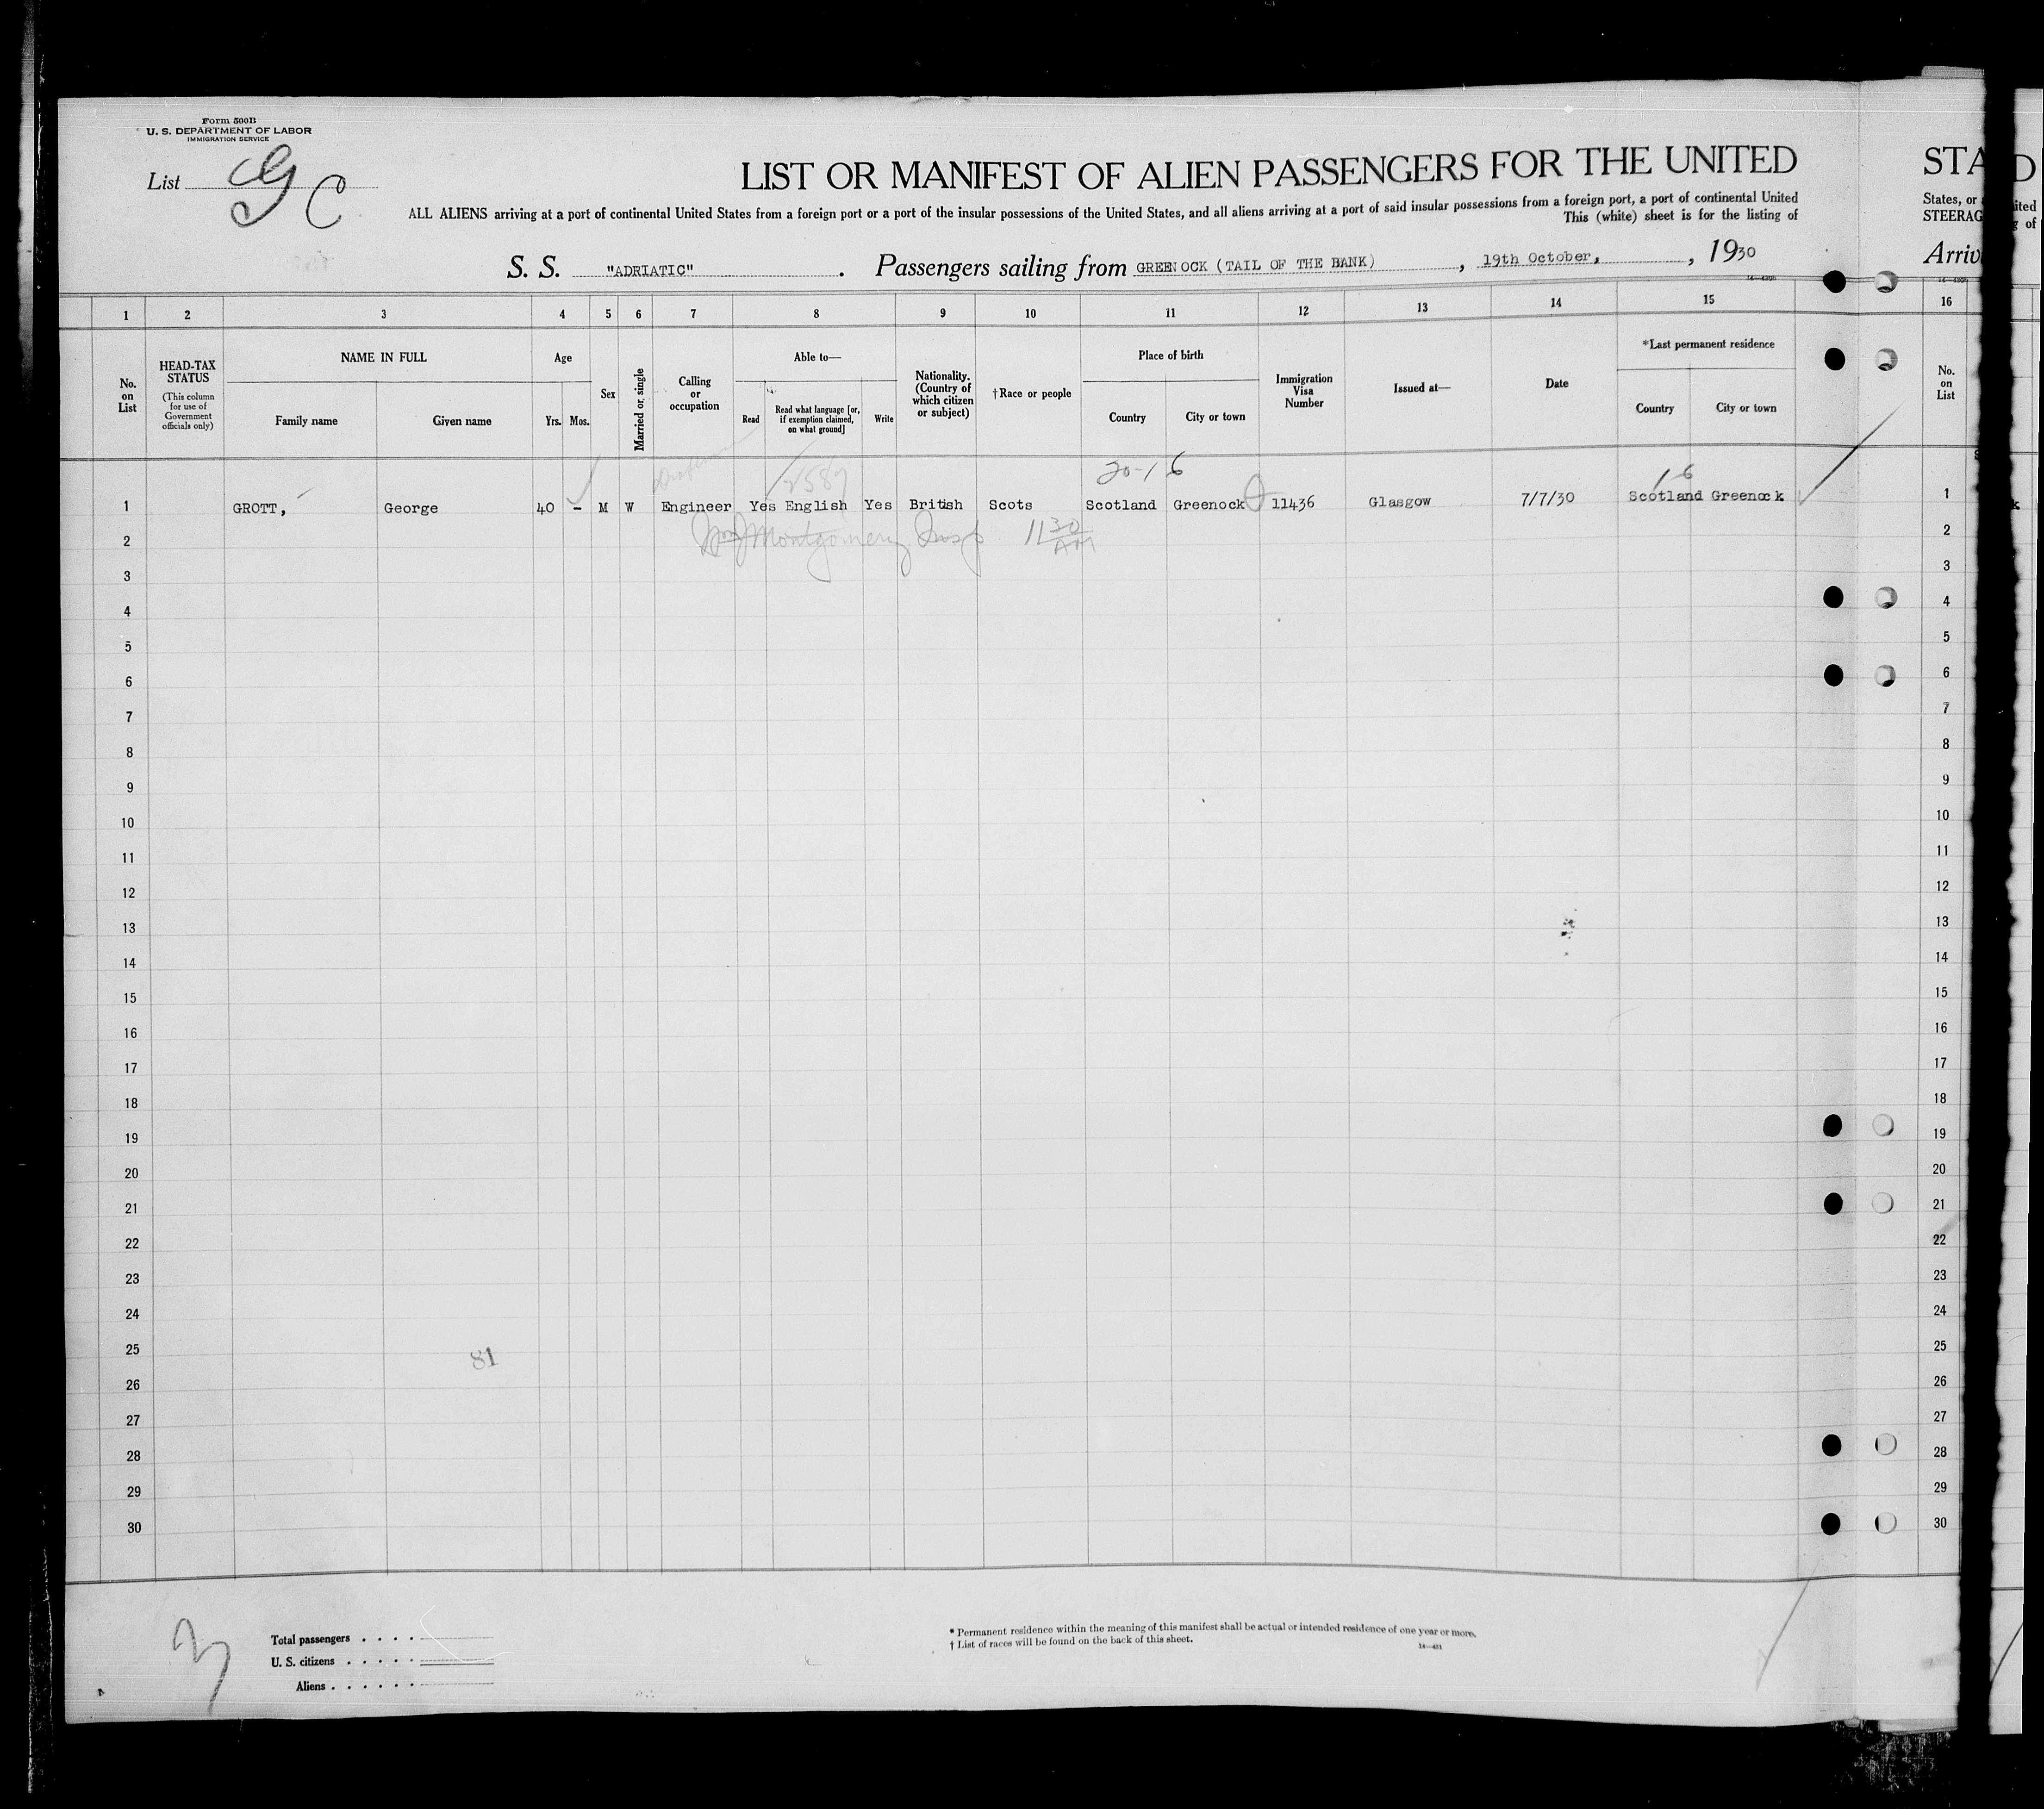 Form 500B
U. S. DEPARTMENT OF LABOR
IMMIGRATION SERVICE
List
LIST OR MANIFEST OF ALIEN PASSENGERS FOR THE UNITED
ALL ALIENS arriving at a port of continental United States from a foreign port or a port of the insular possessions of the United States, and all aliens arriving at a port of said insular possessions from a foreign port, a port of continental United
This (white) sheet is for the listing of
S. S. "ADRIATIC" . Passengers sailing from GREENOCK (TAIL OF THE BANK) , 19th October, , 1930
STA
States, or
STEERAG
Arriv
1 2 3 4 5 6 7 8 9 10 11 12 13 14 15 16
No. on List
HEAD-TAX STATUS
(This column for use of Government officials only)
NAME IN FULL
Family name Given name
Age
Yrs. Mos.
Sex
Married or single
Calling or occupation
Able to—
Read
Read what language [or, if exemption claimed, on what ground]
Write
Nationality. (Country of which citizen or subject)
†Race or people
Place of birth
Country City or town
Immigration Visa Number
Issued at—
Date
*Last permanent residence
Country City or town
No. on List
20-16
16
2587
1 GROTT, George 40 - M W Engineer Yes English Yes British Scots Scotland Greenock 11436 Glasgow 7/7/30 Scotland Greenock 1
2 Montgomery Insp 11 30 AM 2
3 3
4 4
5 5
6 6
7 7
8 8
9 9
10 10
11 11
12 12
13 13
14 14
15 15
16 16
17 17
18 18
19 19
20 20
21 21
22 22
23 23
24 24
25 81 25
26 26
27 27
28 28
29 29
30 30
Total passengers . . . .
U. S. citizens . . . . . .
Aliens . . . . . .
* Permanent residence within the meaning of this manifest shall be actual or intended residence of one year or more.
† List of races will be found on the back of this sheet.